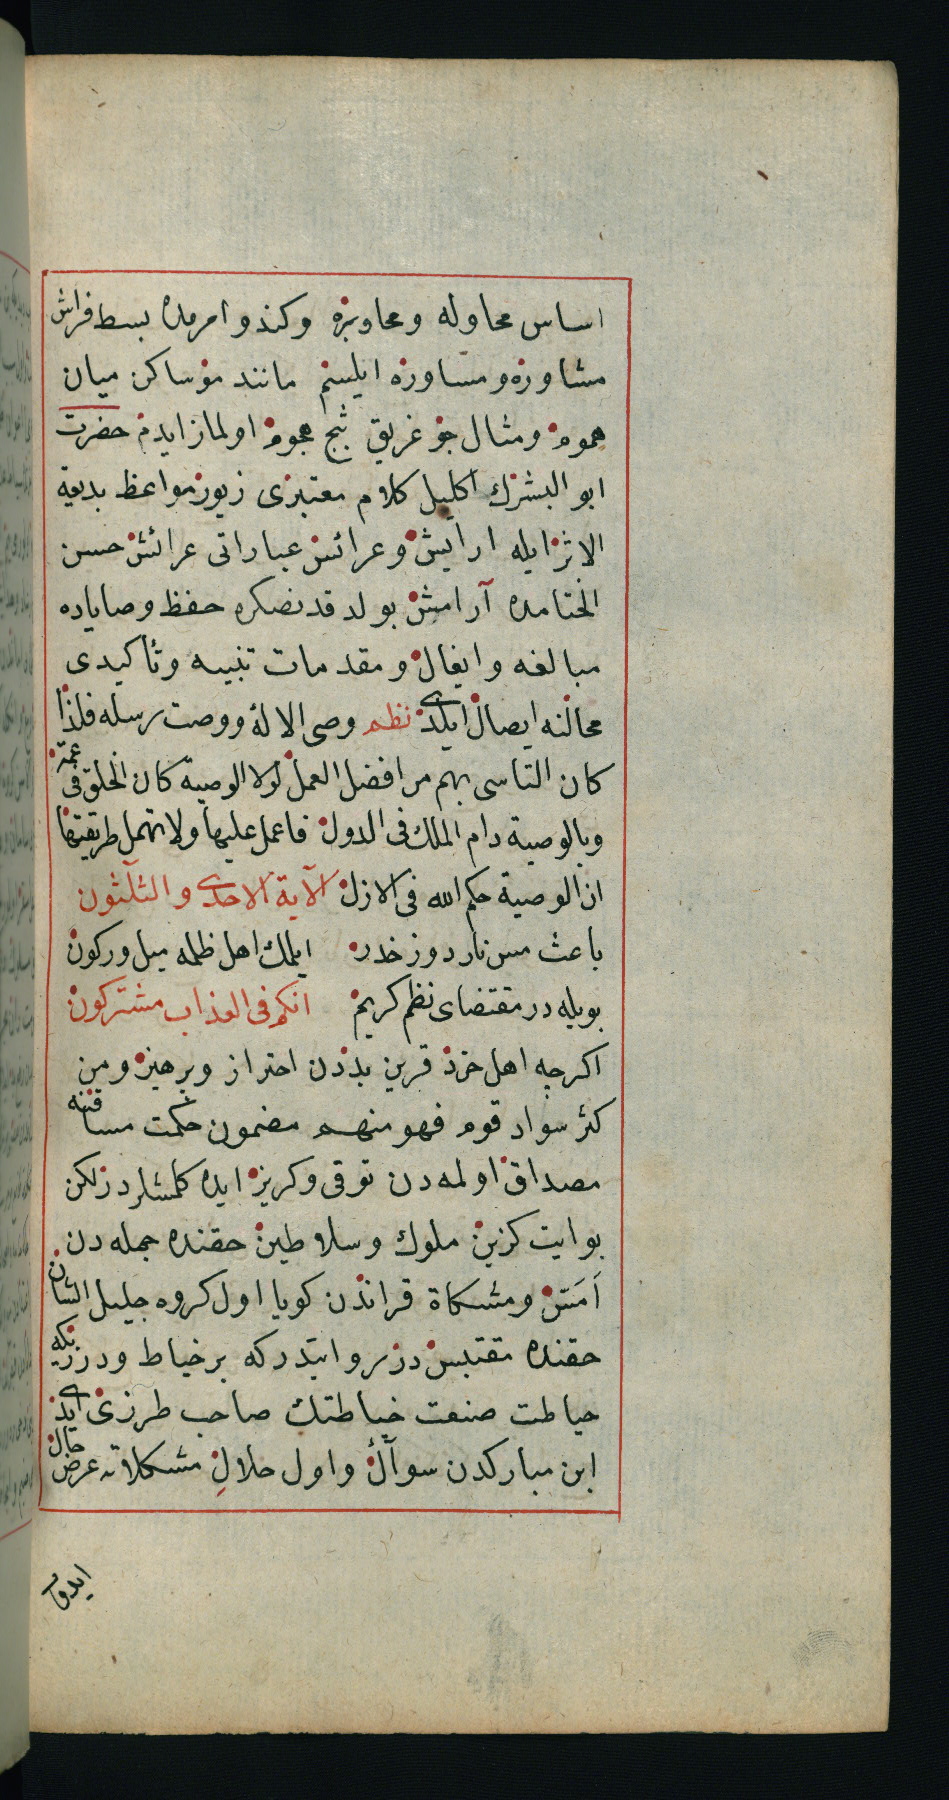 اساس محاوله ومحاوره وكندو امرمده بسط فراش
مشاوره ومساوره ايلسم مانند مو ساكن ميان
هموم ومثال جو غريق ثبج هجوم اولماز ايدم حضرت
ابو البشرك اكليل كلام معتبرى زيور مواعظ بديعة
الاثر ايله ارايش وعرائس عباراتى عرائش حسن
الختامده آرامش بولدقدنصكره حفظ وصاياده
مبالغه وايغال ومقدمات تنبيه وتأكيدى
محالنه ايصال ايلدى نظم وصى الاله ووصت رسله فلذا
كان التاسى بهم من افضل العمل لولا الوصية كان الخلق فى عمه
وبالوصية دام الملك فى الدول فاعمل عليها ولا تهمل طريقتها
ان الوصية حكم الله فى الازل الآية الاحدى والثلثون
باعث مس نار دوزخدر ايلمك اهل ظلمه ميل وركون
بويله در مقتضاى نظم كريم انكم فى العذاب مشتركون
اكرچه اهل خرد قرين بددن احتراز وپرهيز ومن
كثر سواد قوم فهو منهم مضمون حكمت مساقنه
مصداق اولمه دن توقى وكريز ايده كلمشلردر لكن
بو ايت كزين ملوك وسلاطين حقنده جمله دن
اَمَتن ومشكاة قراندن كويا اول كروه جليل الشان
حقنده مقتبس در روايتدر كه بر خياط ودرزيكه
حياطت صنعت خياطتك صاحب طرزى ايدى
ابن مباركدن سوآل واول حلال مشكلاته عرض حال
ايدوب